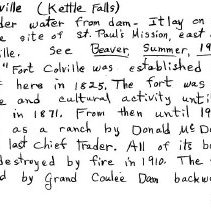 ville (Kettle Falls)
der water from dam - It lay on
e site of St. Paul's Mission, east
lle. See Beaver, Summer, 19
"Fort Colville was established
here in 1825. The fort was
e and cultural activity until
in 1871. From then until 19
as a ranch by Donald McD
last Chief Trader. All of its b
destroyed by fire in 1910. The
d by Grand Coulee Dam backw